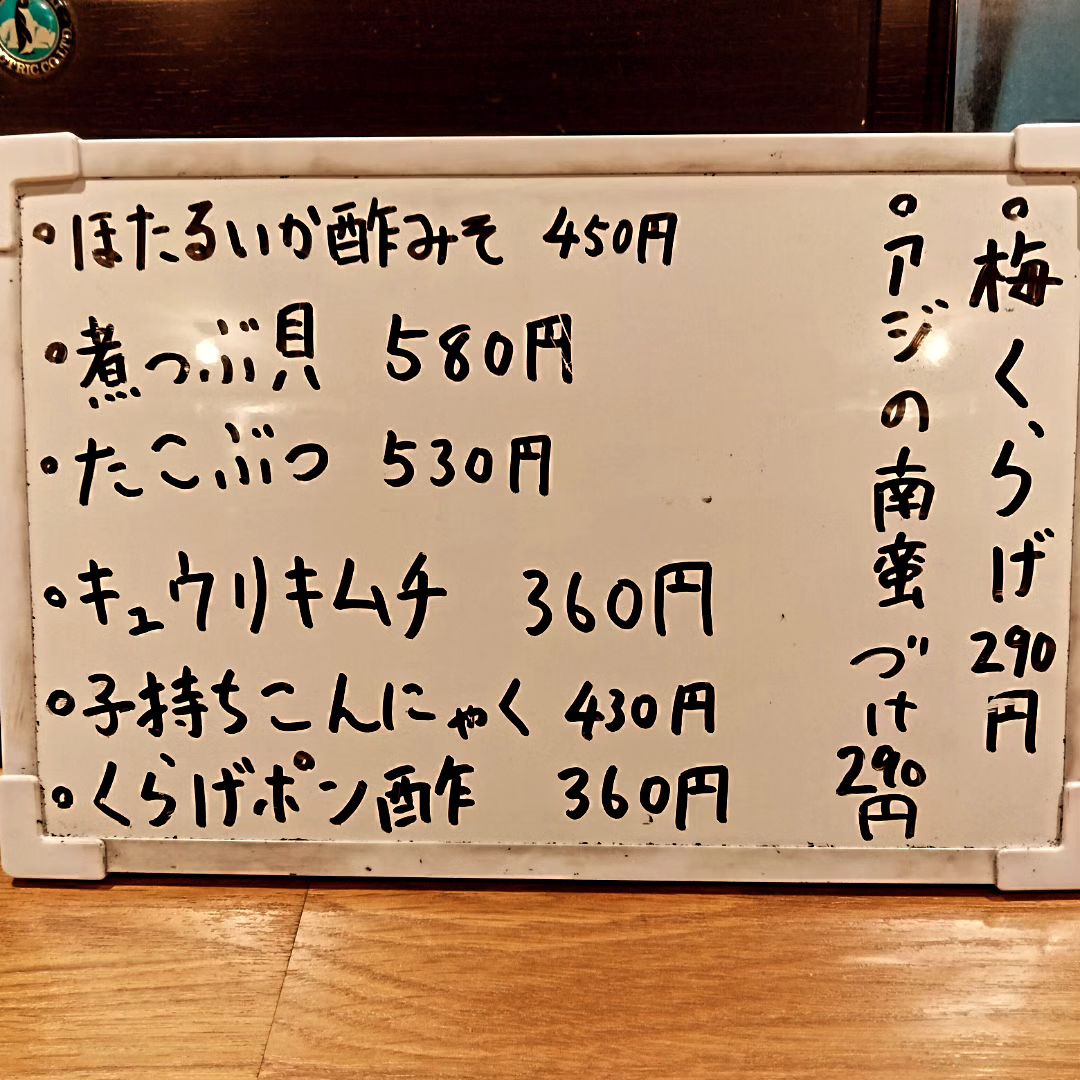 。ほたるいか酢みそ 450円
。煮つぶ貝 580円
。たこぶつ 530円
。キュウリキムチ 360円
。子持ちこんにゃく 430円
。くらげポン酢 360円
。梅くらげ 290円
。アジの南蛮づけ 290円
CTRIC CO.LTD.